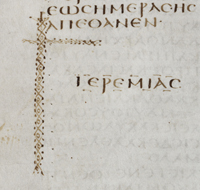 ΕΩΣΗΜΕΡΑΣΗΣ
ΑΠΕΘΑΝΕΝ·
ΙΕΡΕΜΙΑΣ